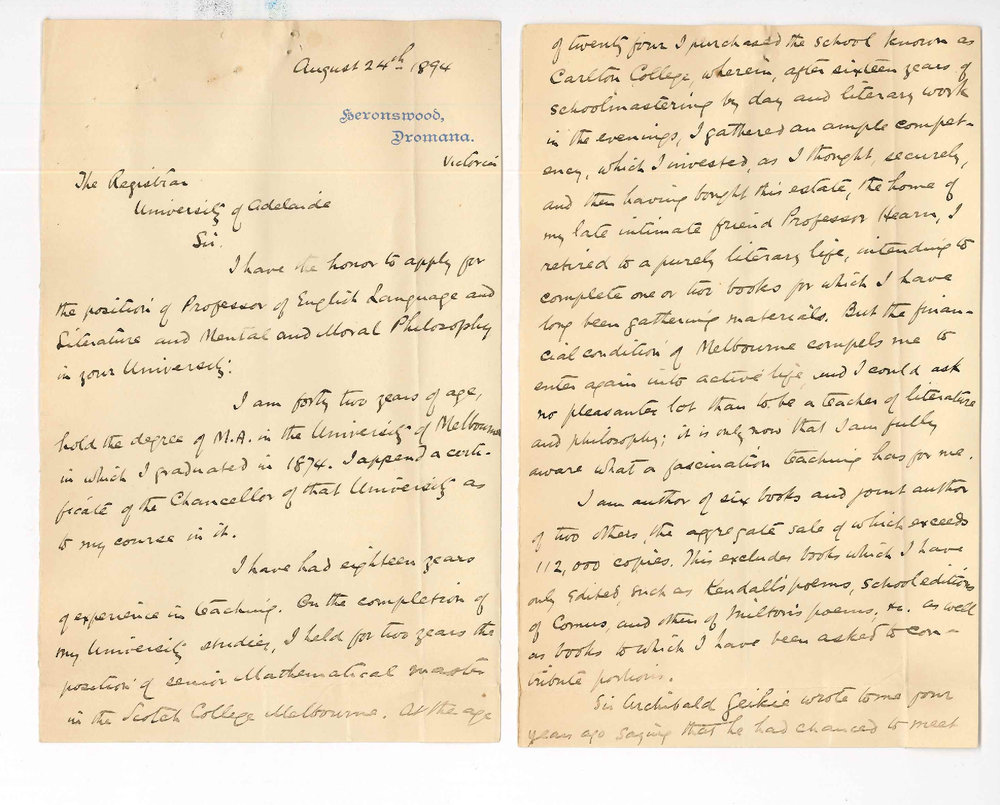 August 24th 1894
Heronswood,
Dromana.
Victoria
The Registrar
University of Adelaide
Sir.
I have the honor to apply for
the position of Professor of English Language and
Literature and Mental and Moral Philosophy
in your University.
I am forty two years of age,
hold the degree of M.A. in the University of Melbourne
in which I graduated in 1874. I append a certi-
ficate of the Chancellor of that University as
to my course in it.
I have had eighteen years
of experience in teaching. On the completion of
my University studies, I held for two years the
position of senior Mathematical master
in the Scotch College Melbourne. At the age
of twenty four I purchased the school known as
Carlton College, wherein, after sixteen years of
schoolmastering by day and literary work
in the evenings, I gathered an ample compet-
ency, which I invested, as I thought, securely,
and then having bought this estate, the home of
my late intimate friend Professor Hearn, I
retired to a purely literary life, intending to
complete one or two books for which I have
long been gathering materials. But the finan-
cial condition of Melbourne compels me to
enter again into active life, and I could ask
no pleasanter lot than to be a teacher of literature
and philosophy; it is only now that I am fully
aware what a fascination teaching has for me.
I am author of six books and joint author
of two others, the aggregate sale of which exceeds
112,000 copies. This excludes books which I have
only edited, such as Kendall's poems, school editions
of Comus, and others of Milton's poems, &c. as well
as books to which I have been asked to con-
tribute portions.
Sir Archibald Geikie wrote to me four
years ago saying that he had chanced to meet